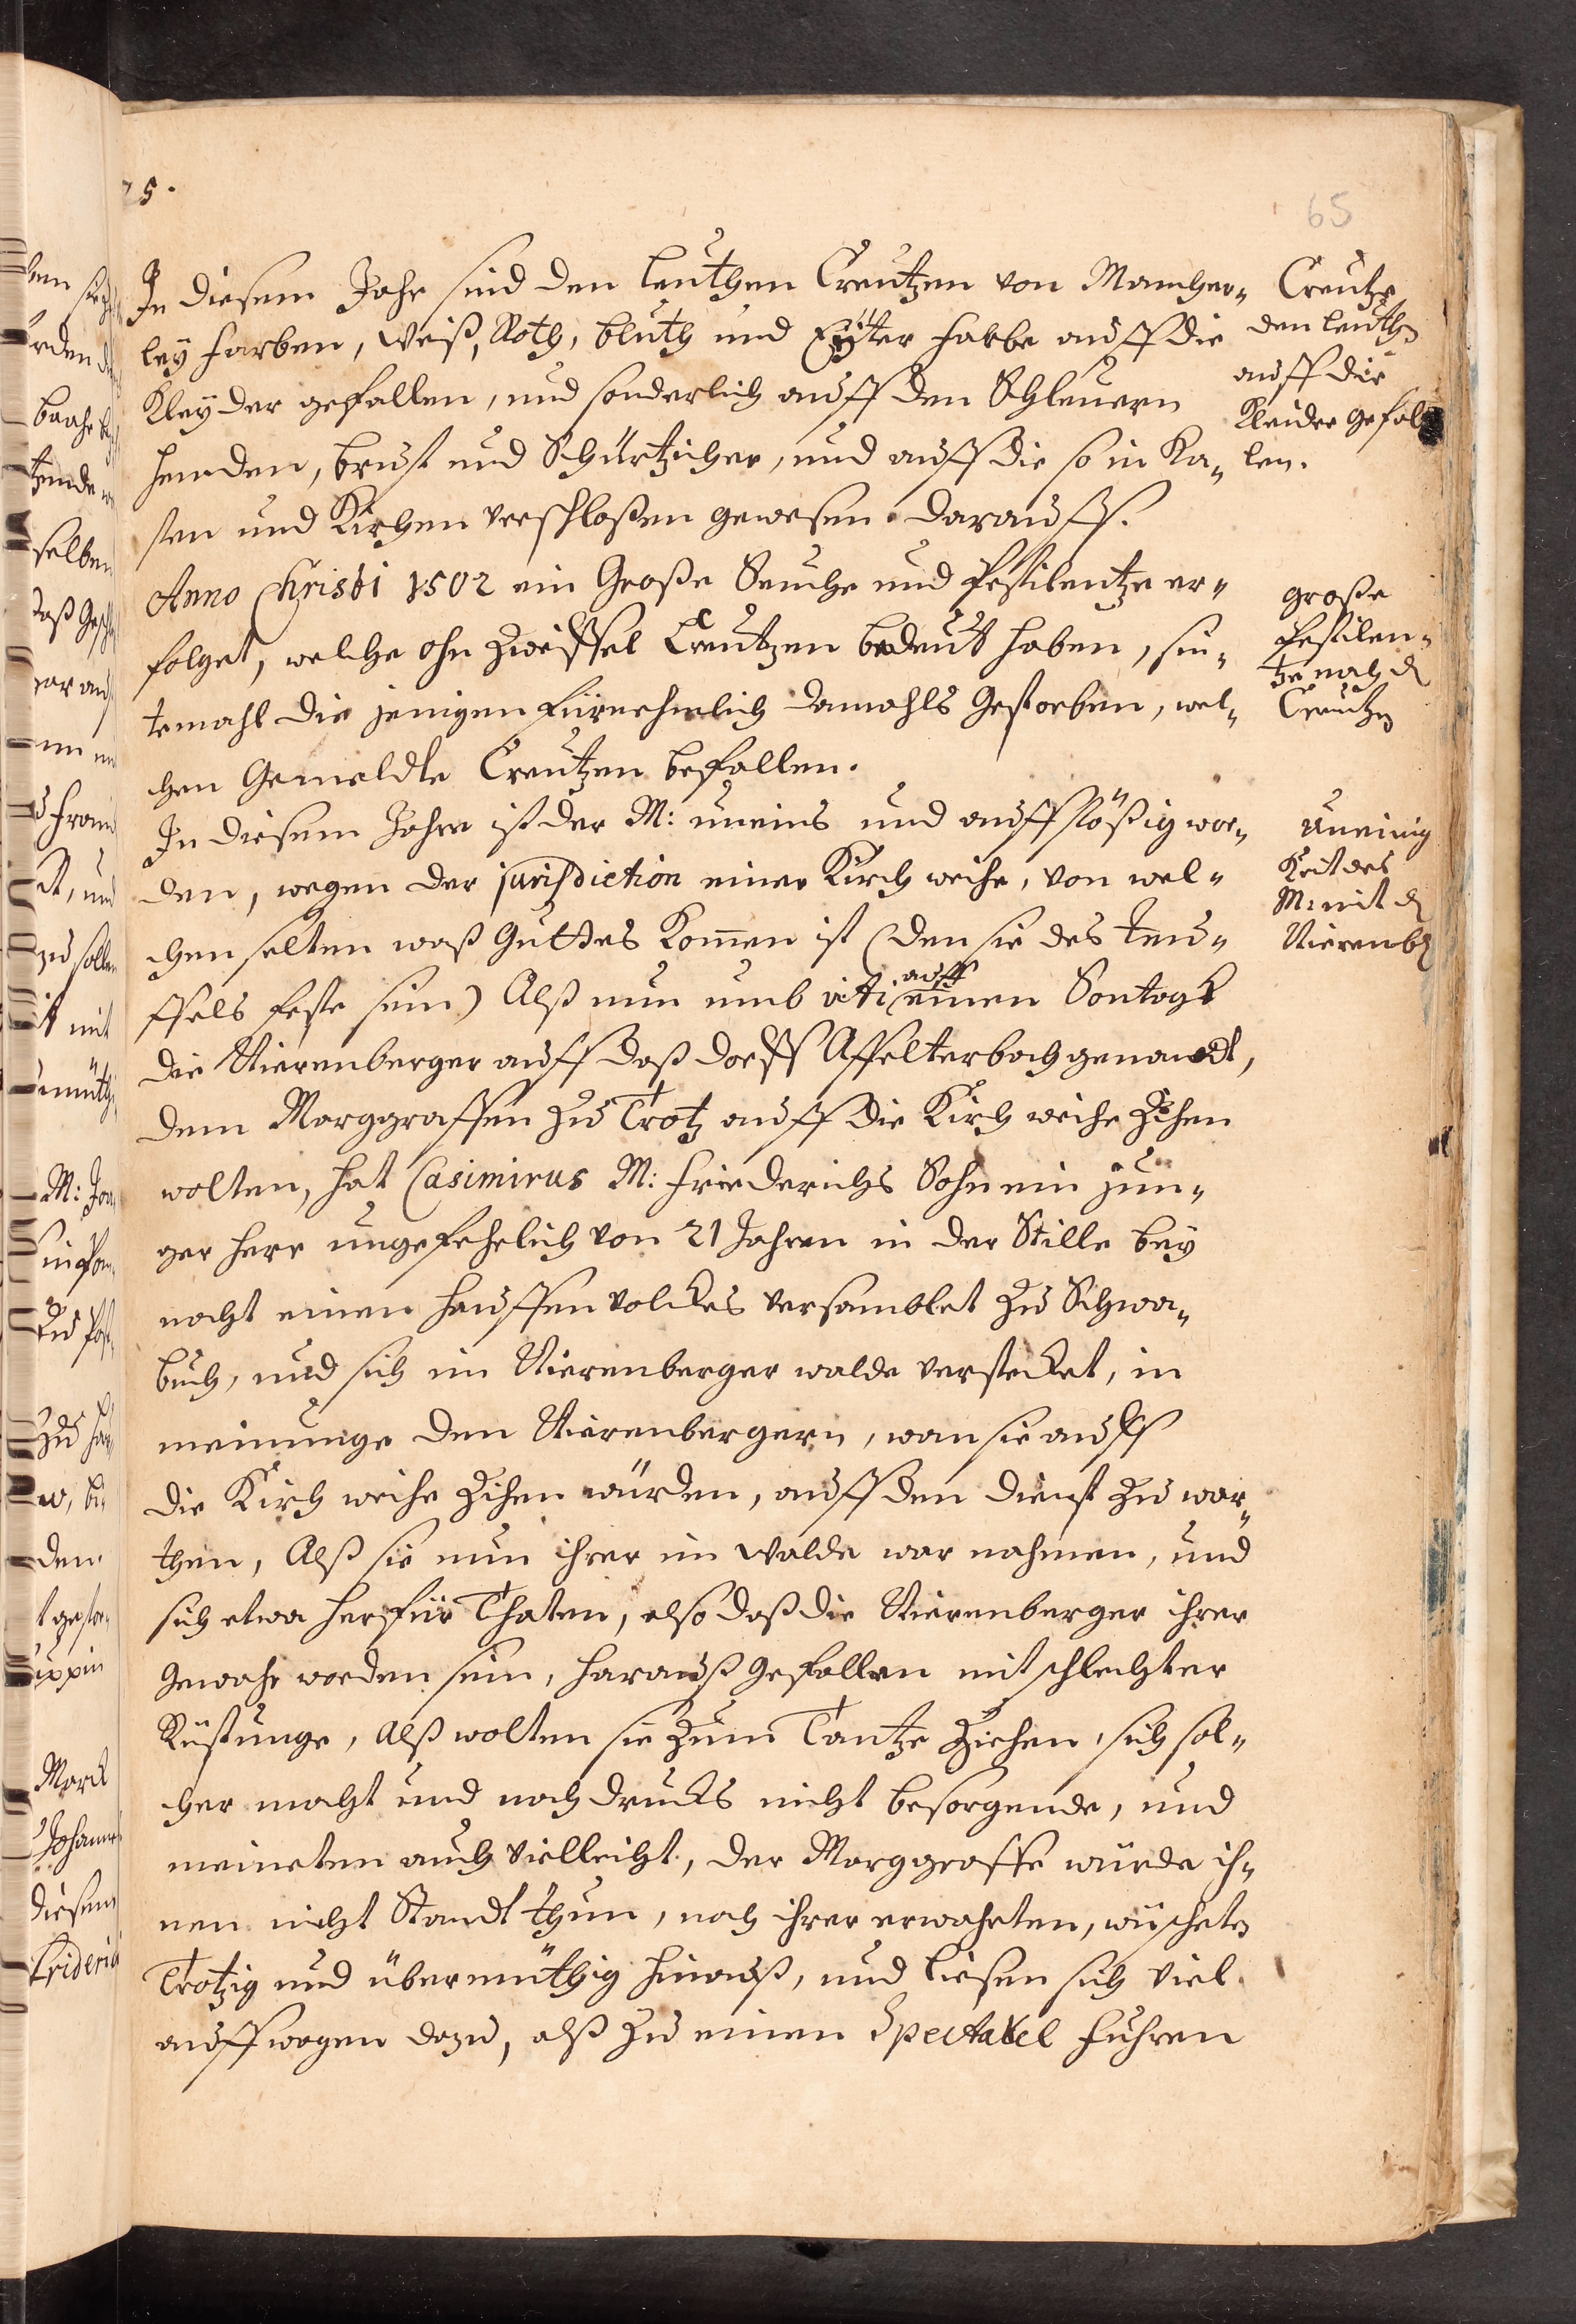 75.
65
In diesem Jahr sind den leuthen Creutzen von Mancher-
ley farben, Weiß, Roth, bluth und Eÿter farbe auff die
Kleyder gefallen, und sonderlich auff den Schleuern
hemden, brust und Schürtzicher, und auff die so in Ka-
sten und Kirchen verschloßen gewesen. darauff.
Anno Christi 1502 ein Große Seuche und Pestilentze er-
folget, welche ohn Zweiffel Creutzen bedeut haben, sin-
temahl die jenigen fürnehmlich damahls Gestorben, wel-
chen Gemeldte Creutzen befallen.
In diesem Jahre ist der M: uneins und auffstößig wor-
den, wegen der jurisdiction einer Kirch weihe, von wel-
chen selten waß Guttes Komen ist (den sie des teu-
ffels feste sein) Alß nun umb viti auff einen Sontagk
die Nierenberger auff daß dorff Affelterbach genandt,
dem Marggraffen zu Trotz auff die Kirch weihe Zihen
wolten, hat Casimirus M: Friederichs Sohn ein jun-
ger herr ungefehrlich von 21 Jahren in der Stille bey
nacht einen hauffen volckes versamblet zu Schwa-
buch, und sich im Nierenberger walde verstecket, in
meinunge den Nierenbergern, wan sie auff
die Kirch weihe Zihen würden, auff den dienst zu war-
then, Alß sie nun ihrer im Walde war nahmen, und
sich etwa herfür Thaten, also daß die Nierenberger ihrer
gewahr worden sein, harauß gefallen mit schlechter
Rüstunge, Alß wolten sie zum Tantze Ziehen, sich sol-
cher macht und nachdrucks nicht besorgende, und
meineten auch Vielleicht, der Marggraffe würde ih-
nen nicht Standt thun, noch ihrer erwahrten, wüscheten
Trotzig und übermüthig hinauß, und liesen sich viel
auff wagen dazu, alß zu einen Spectakel führen
Creutze
den leuthen
auff die
Kleider gefal
len.
große
Pestilen-
tze nach d
Creutzen
Uneinig
Keit des
M: mit d
Nierenb